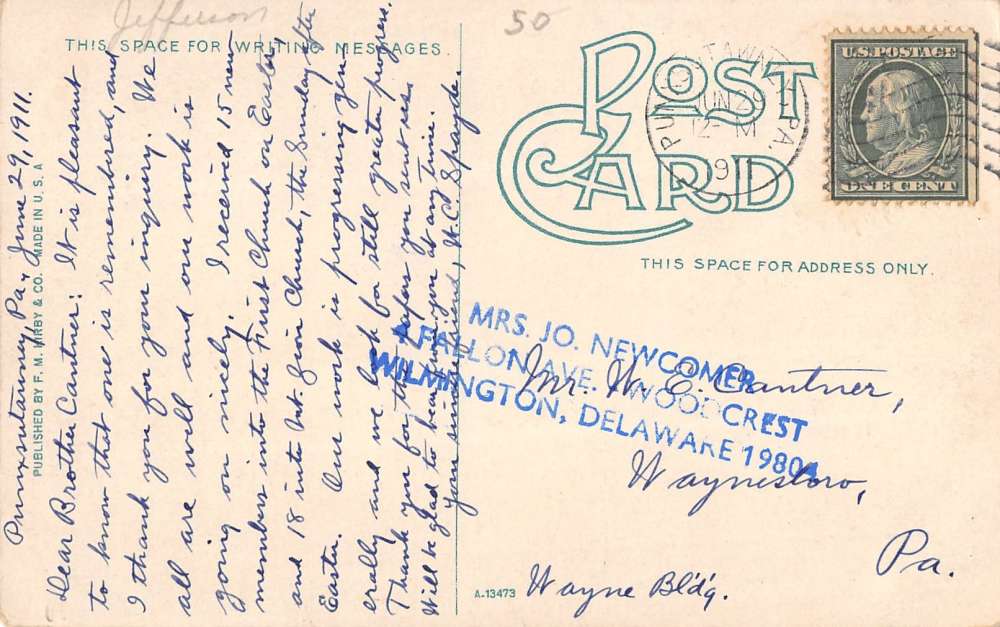 Jefferson
50
THIS SPACE FOR WRITING MESSAGES
PUBLISHED BY F. M. KIRBY & CO. MADE IN U. S. A.
Punxsutawney, Pa., June 29, 1911.
Dear Brother Cantner: It is pleasant
to know that one is remembered, and
I thank you for your inquiry. We
all are well and our work is
going on nicely. I received 15 new
members into the First Church on Easter
and 18 into Mt. Zion Church, the Sunday after
Easter. Our work is progressing gen-
erally and we look for still greater progress.
Thank you for the wafers you sent us.
Will be glad to hear from you at any time.
Yours sincerely,
POST
CARD
PUNXSUTAWNEY PA.
JUN 29
12 - M
191
U.S. POSTAGE
ONE CENT
THIS SPACE FOR ADDRESS ONLY.
MRS. JO. NEWCOMER
FALLON AVE. WOODCREST
WILMINGTON, DELAWARE 19804
Mr. W. E. Cantner,
Waynesboro,
Pa.
Wayne Bld'g.
A-13473